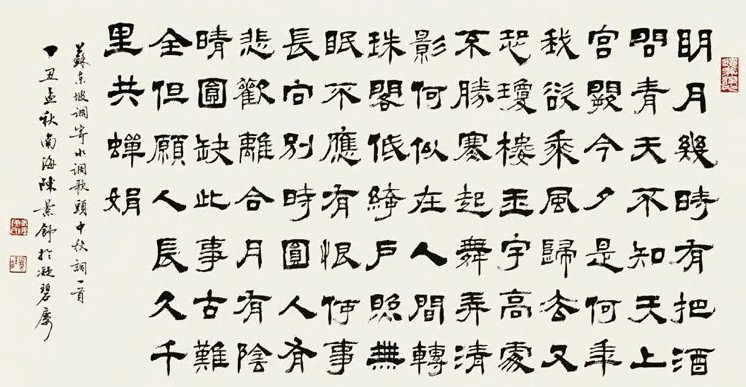 明月幾時有把酒
問青天不知天上
宮闕今夕是何年
我欲乘風歸去又
恐瓊樓玉宇高處
不勝寒起舞弄清
影何似在人間轉
珠閣低綺戶照無
眠不應有恨何事
長向別時圓人有
悲歡離合月有陰
晴圓缺此事古難
全但願人長久千
里共蟬娟
蘇東坡調寄水調歌頭中秋詞一首
丁丑孟秋南海陳景舒於凝碧廔